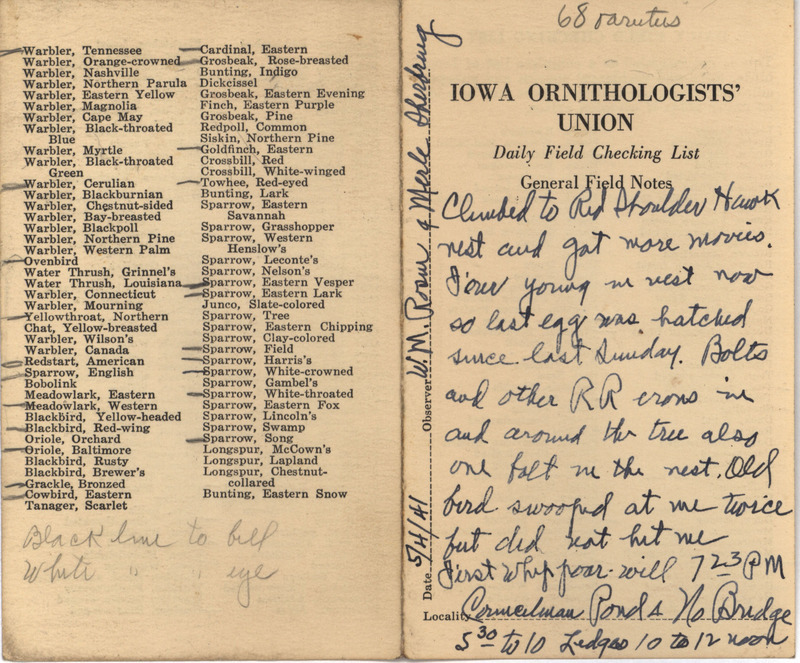 Warbler, Tennessee
Warbler, Orange-crowned
Warbler, Nashville
Warbler, Northern Parula
Warbler, Eastern Yellow
Warbler, Magnolia
Warbler, Cape May
Warbler, Black-throated
Blue
Warbler, Myrtle
Warbler, Black-throated
Green
Warbler, Cerulian
Warbler, Blackburnian
Warbler, Chestnut-sided
Warbler, Bay-breasted
Warbler, Blackpoll
Warbler, Northern Pine
Warbler, Western Palm
Ovenbird
Water Thrush, Grinnel's
Water Thrush, Louisiana
Warbler, Connecticut
Warbler, Mourning
Yellowthroat, Northern
Chat, Yellow-breasted
Warbler, Wilson's
Warbler, Canada
Redstart, American
Sparrow, English
Bobolink
Meadowlark, Eastern
Meadowlark, Western
Blackbird, Yellow-headed
Blackbird, Red-wing
Oriole, Orchard
Oriole, Baltimore
Blackbird, Rusty
Blackbird, Brewer's
Grackle, Bronzed
Cowbird, Eastern
Tanager, Scarlet
Cardinal, Eastern
Grosbeak, Rose-breasted
Bunting, Indigo
Dickcissel
Grosbeak, Eastern Evening
Finch, Eastern Purple
Grosbeak, Pine
Redpoll, Common
Siskin, Northern Pine
Goldfinch, Eastern
Crossbill, Red
Crossbill, White-winged
Towhee, Red-eyed
Bunting, Lark
Sparrow, Eastern
Savannah
Sparrow, Grasshopper
Sparrow, Western
Henslow's
Sparrow, Leconte's
Sparrow, Nelson's
Sparrow, Eastern Vesper
Sparrow, Eastern Lark
Junco, Slate-colored
Sparrow, Tree
Sparrow, Eastern Chipping
Sparrow, Clay-colored
Sparrow, Field
Sparrow, Harris's
Sparrow, White-crowned
Sparrow, Gambel's
Sparrow, White-throated
Sparrow, Eastern Fox
Sparrow, Lincoln's
Sparrow, Swamp
Sparrow, Song
Longspur, McCown's
Longspur, Lapland
Longspur, Chestnut-
collared
Bunting, Eastern Snow
Black line to bill
White " " eye
68 varieties
IOWA ORNITHOLOGISTS'
UNION
Daily Field Checking List
General Field Notes
Climbed to Red Shoulder Hawk
nest and got more movies.
Four young in nest now
so last egg was hatched
since last Sunday. Bolts
and other RR irons in
and around the tree also
one bolt in the nest. Old
bird swooped at me twice
but did not hit me
First Whip poor-will 7 23 PM
Date 5/4/41 Observer W. M. Rosen & Merle
Locality Councilman Pond & No Bridge
5 30 to 10 Ledges 10 to 12 noon